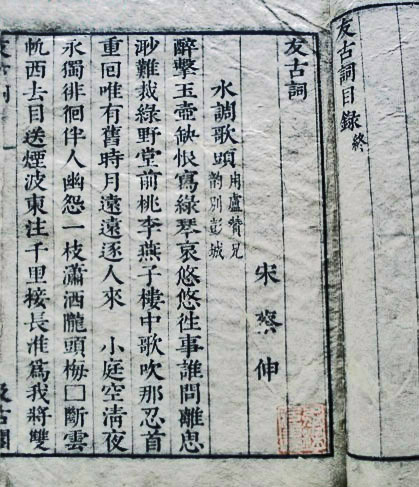 友古詞目錄終
友古詞
宋蔡伸
水調歌頭
用盧贊兄
韵別彭城
醉擊玉壺缺恨寫綠琴哀悠悠徃事誰問離思
渺難裁綠野堂前桃李燕子樓中歌吹那忍首
重回唯有舊時月遠遠逐人來　小庭空清夜
永獨徘徊伴人幽怨一枝瀟洒隴頭梅□斷雲
帆西去目送煙波東注千里接長淮爲我將雙